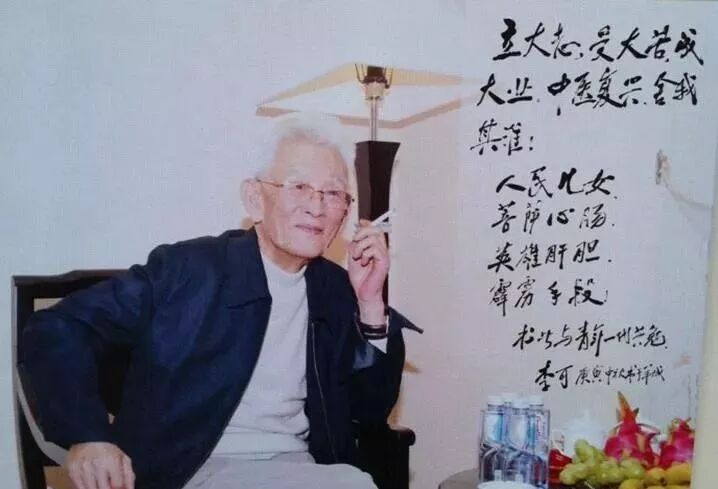 立大志、受大苦、成
大业、中医复兴、舍我
其谁！
人民儿女、
菩萨心肠、
英雄肝胆、
霹雳手段！
与青年一代共勉
李可 庚寅